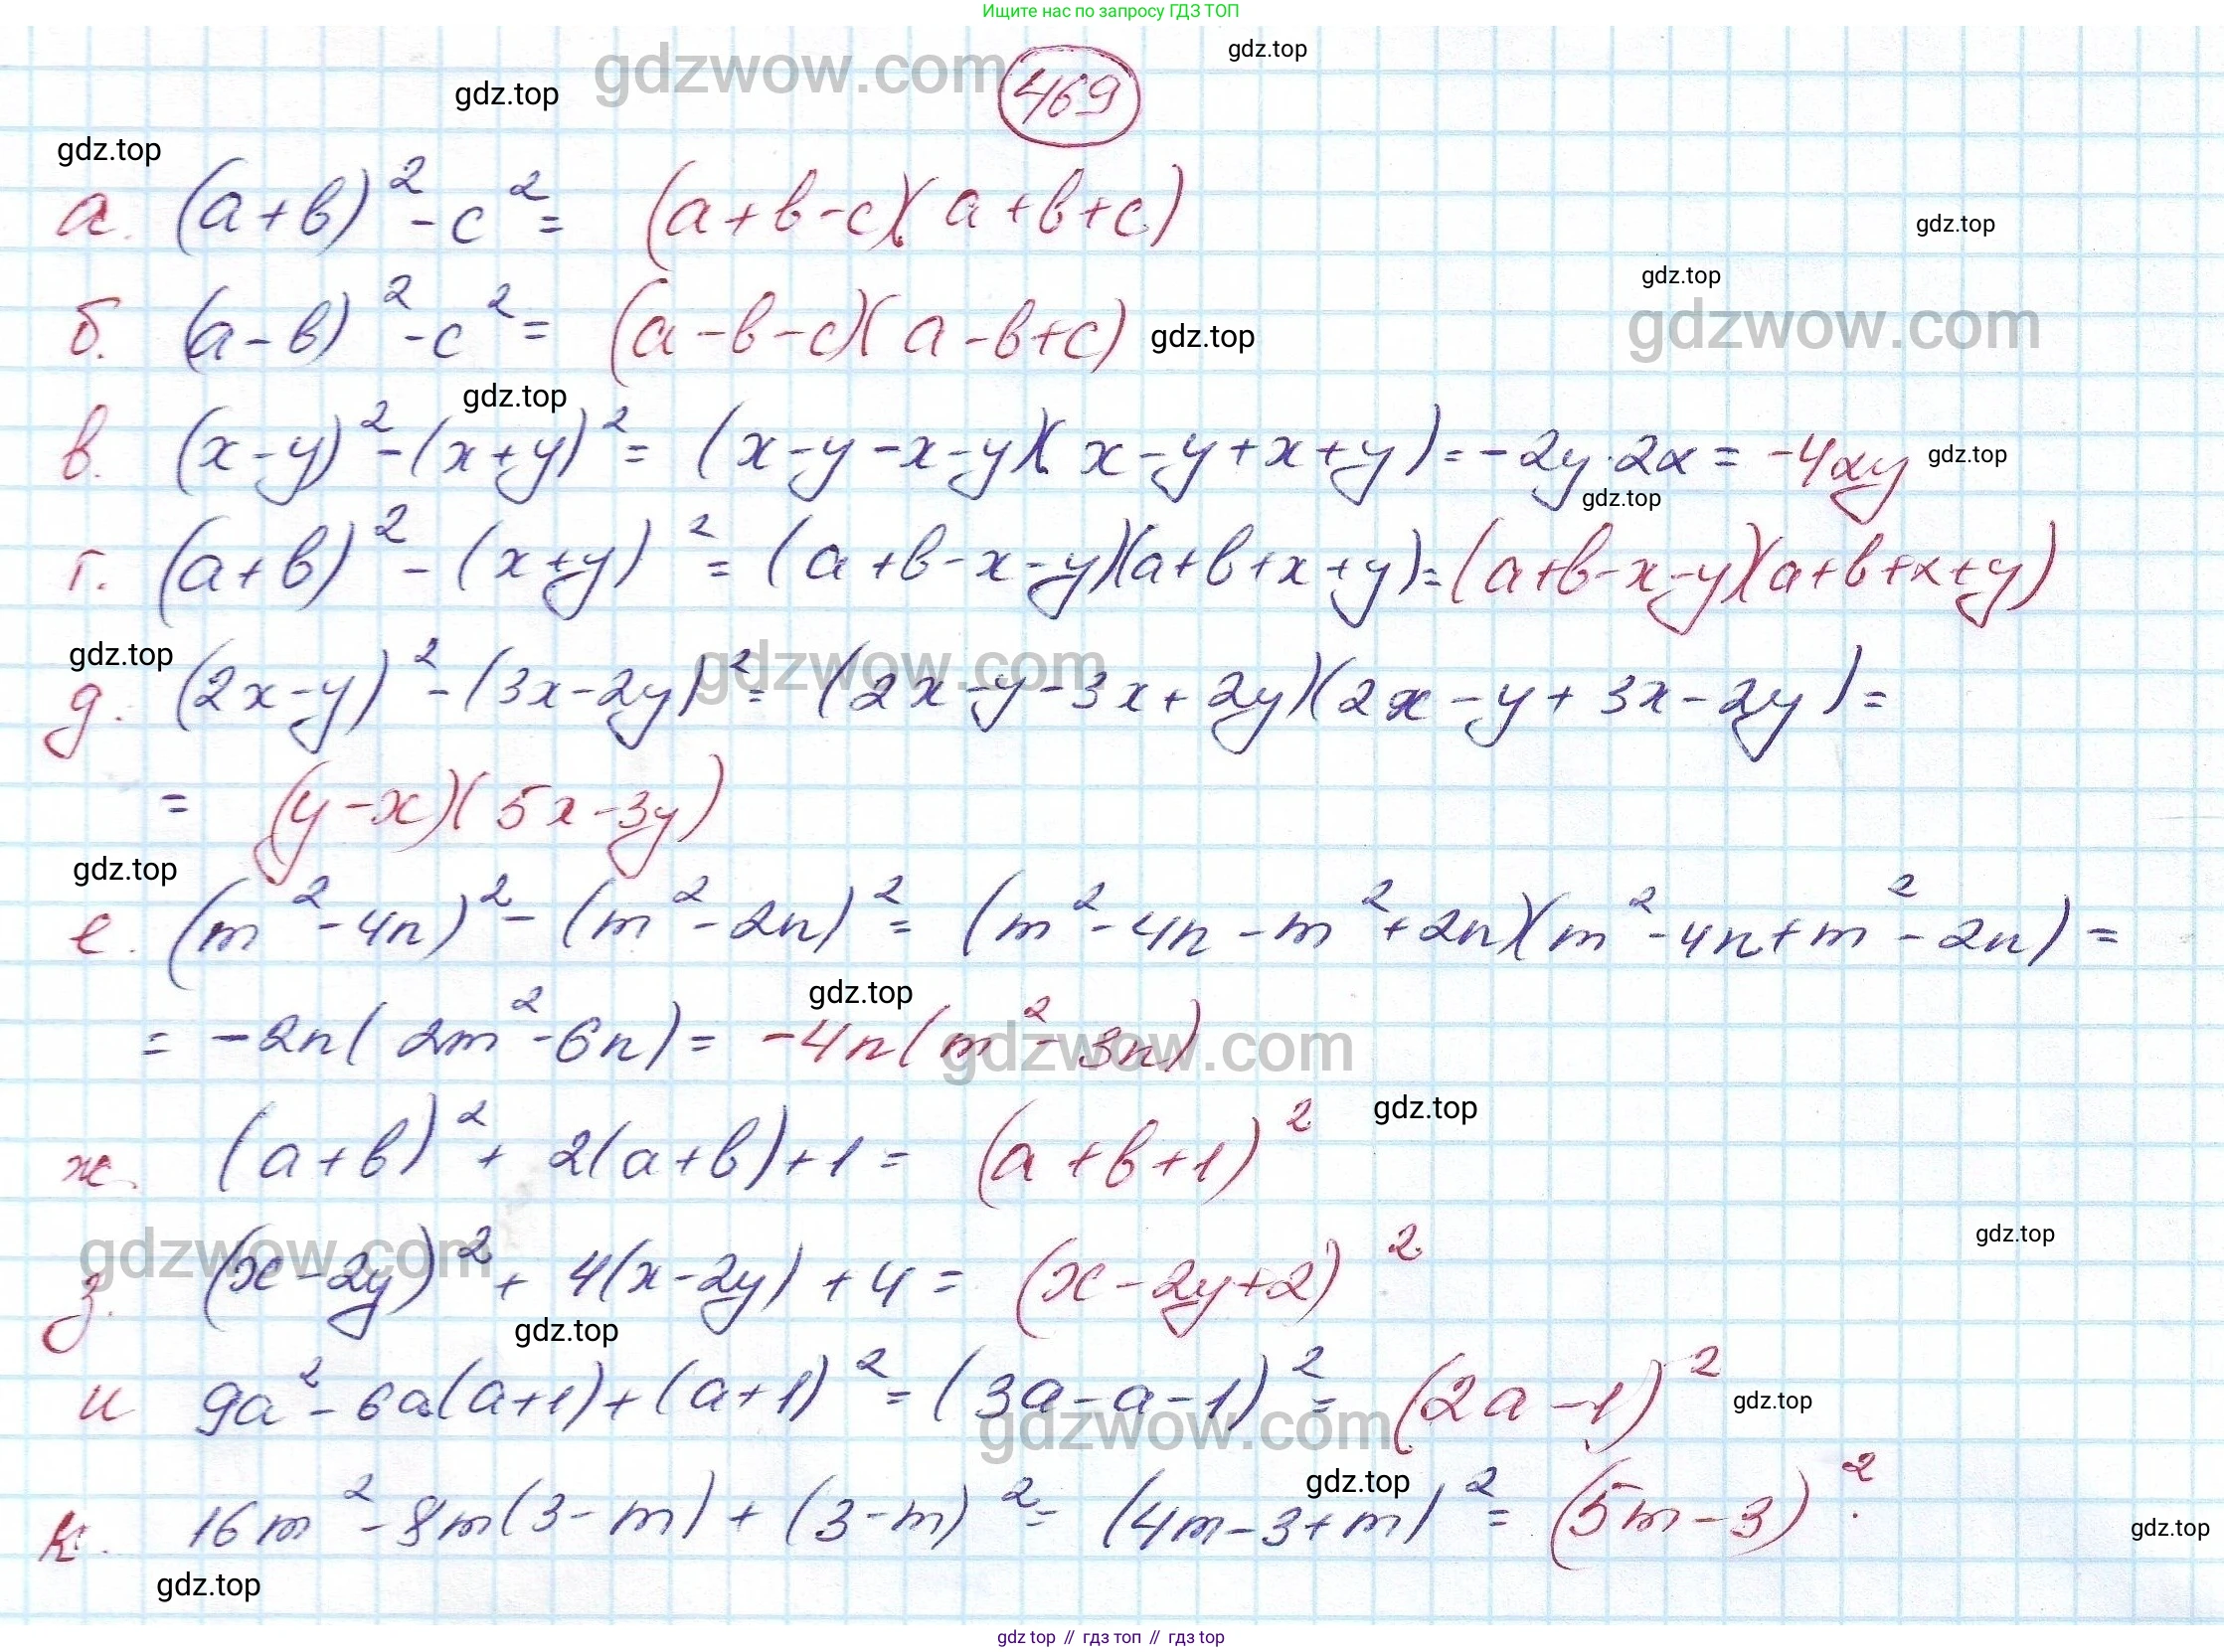 Ищите нас по запросу ГДЗ ТОП
gdzwow.com
gdz.top
469
gdz.top
gdz.top
а. (a+b)²-c²= (a+b-c)(a+b+c)
gdz.top
gdz.top
б. (a-b)²-c²= (a-b-c)(a-b+c) gdz.top
gdzwow.com
gdz.top
в. (x-y)²-(x+y)²= (x-y-x-y)(x-y+x+y)=-2y·2x=-4xy gdz.top
gdz.top
г. (a+b)²-(x+y)²=(a+b-x-y)(a+b+x+y)=(a+b-x-y)(a+b+x+y)
gdz.top
gdzwow.com
д. (2x-y)²-(3x-2y)²= (2x-y-3x+2y)(2x-y+3x-2y)=
= (y-x)(5x-3y)
gdz.top
е. (m²-4n)²-(m²-2n)²= (m²-4n-m²+2n)(m²-4n+m²-2n)=
gdz.top
= -2n(2m²-6n)= -4n(m²-3n)
gdzwow.com
gdz.top
ж. (a+b)²+2(a+b)+1= (a+b+1)²
gdz.top
gdzwow.com
з. (x-2y)²+4(x-2y)+4= (x-2y+2)²
gdz.top
и 9a²-6a(a+1)+(a+1)²=(3a-a-1)²= (2a-1)² gdz.top
gdzwow.com
gdz.top
к. 16m²-8m(3-m)+(3-m)²= (4m-3+m)²= (5m-3)².
gdz.top
gdz.top
gdz top // гдз топ // гдз top